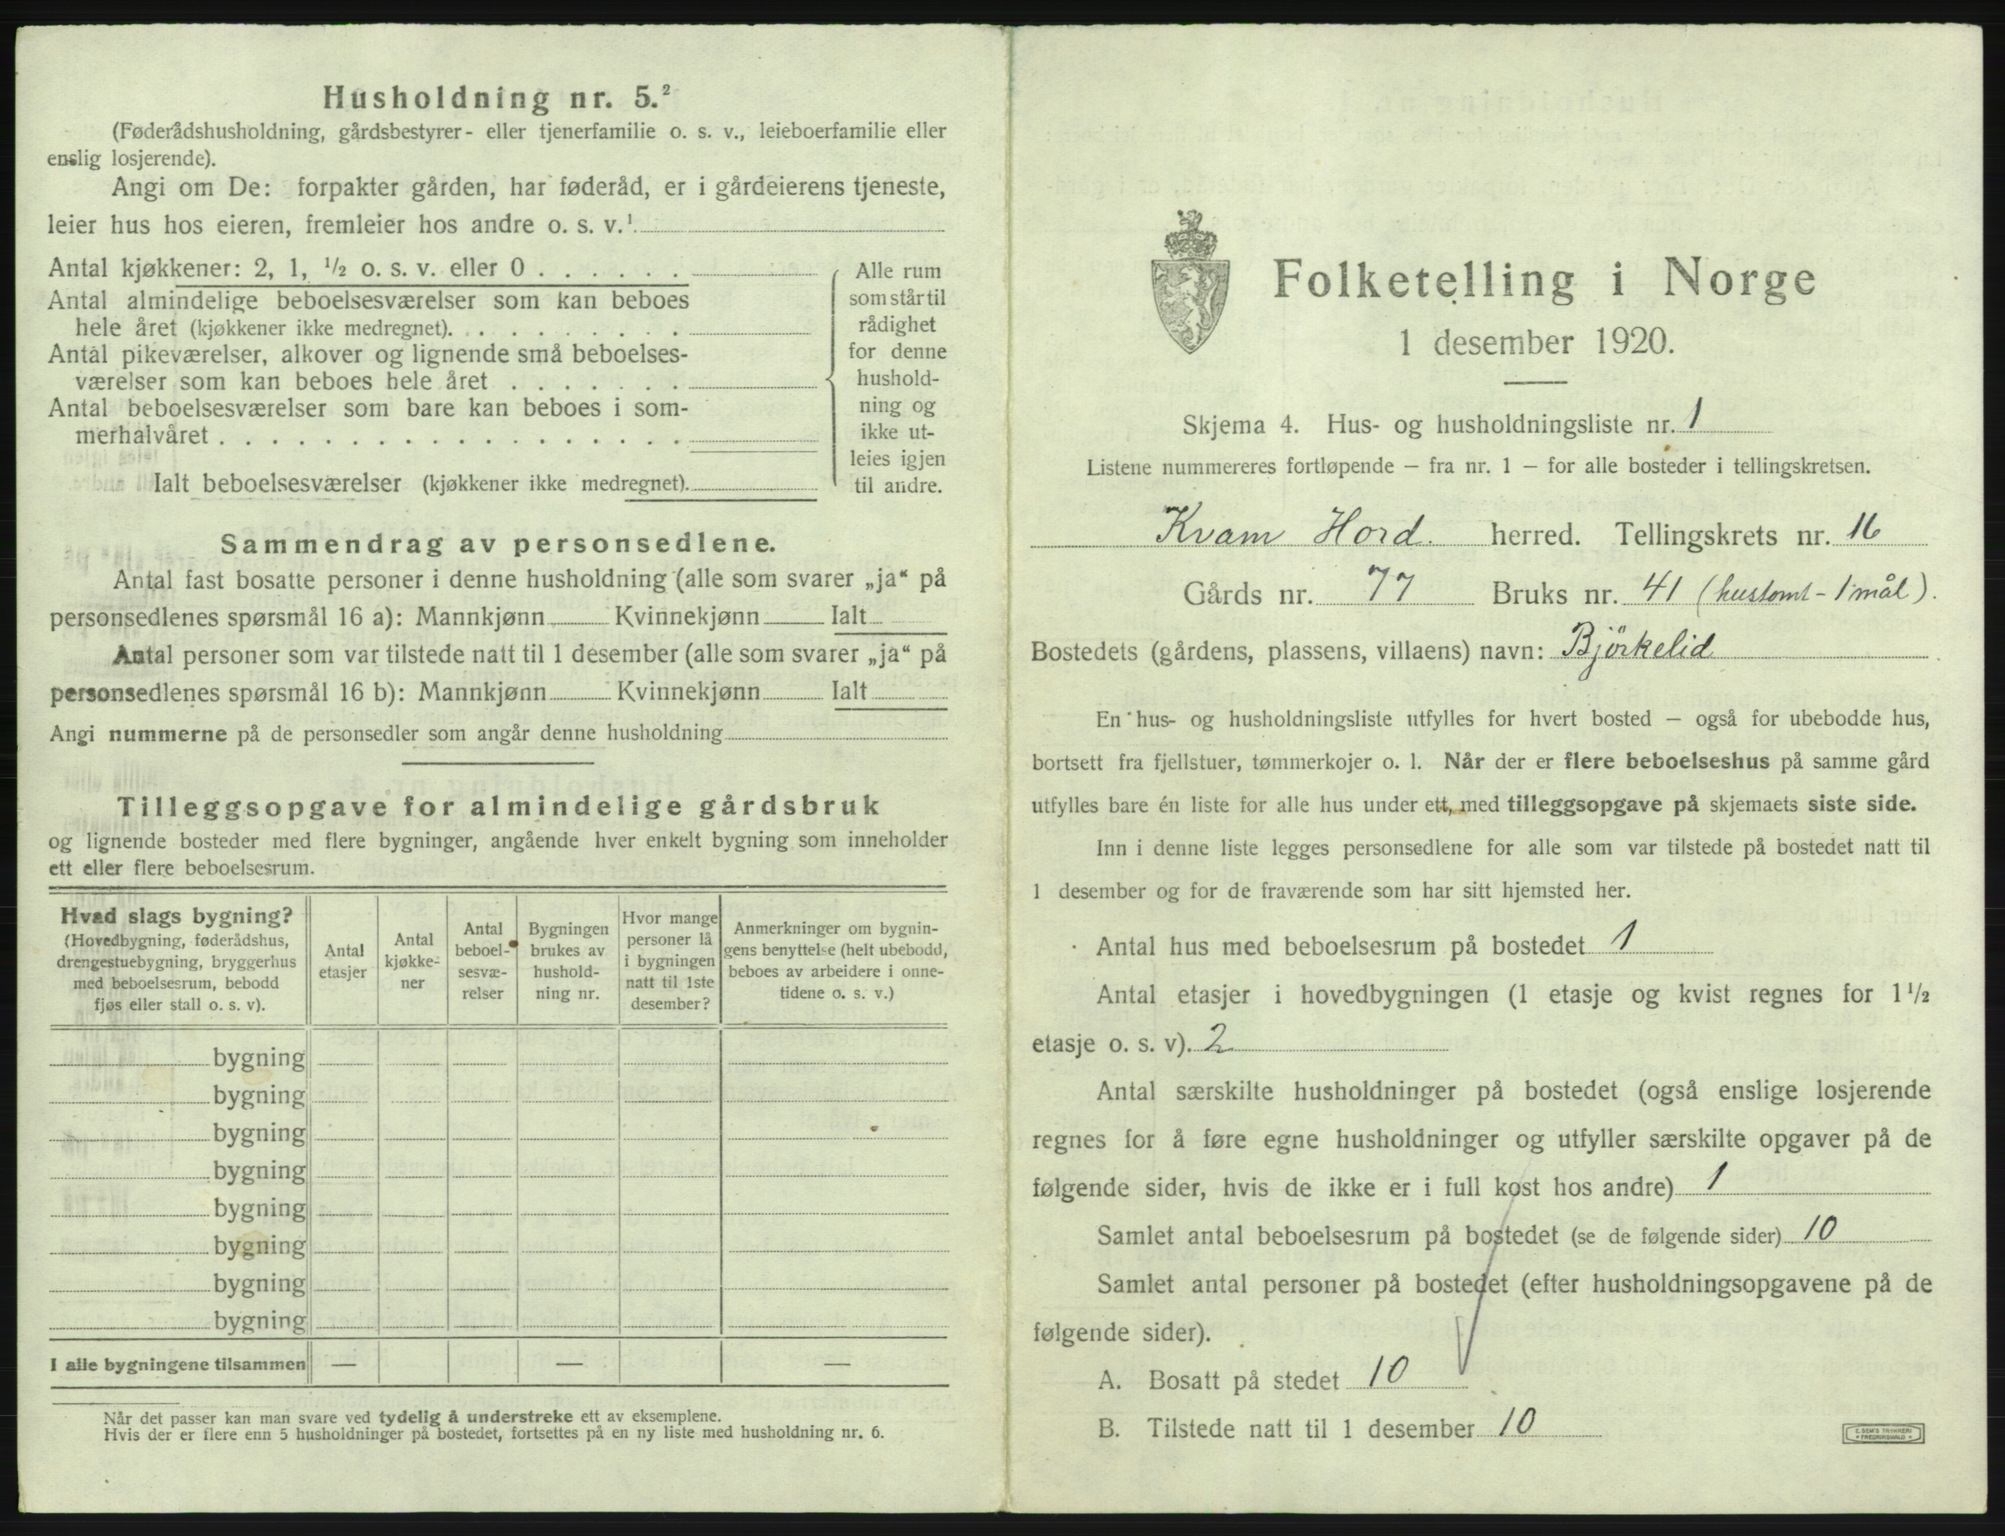 Husholdning nr. 5.²
(Føderådshusholdning, gårdsbestyrer- eller tjenerfamilie o. s. v., leieboerfamilie eller
enslig losjerende).
Angi om De: forpakter gården, har føderåd, er i gårdeierens tjeneste,
leier hus hos eieren, fremleier hos andre o. s. v.¹
Antal kjøkkener: 2, 1, ½ o. s. v. eller 0 . . . . . .
Antal almindelige beboelsesværelser som kan beboes
hele året (kjøkkener ikke medregnet). . . . . . . . . .
Antal pikeværelser, alkover og lignende små beboelses-
værelser som kan beboes hele året . . . . . . .
Antal beboelsesværelser som bare kan beboes i som-
merhalvåret . . . . . . . . . . . . . . . . . .
Ialt beboelsesværelser (kjøkkener ikke medregnet).
Alle rum
som står til
rådighet
for denne
hushold-
ning og
ikke ut-
leies igjen
til andre.
Sammendrag av personsedlene.
Antal fast bosatte personer i denne husholdning (alle som svarer „ja“ på
personsedlenes spørsmål 16 a): Mannkjønn Kvinnekjønn Ialt
Antal personer som var tilstede natt til 1 desember (alle som svarer „ja“ på
personsedlenes spørsmål 16 b): Mannkjønn Kvinnekjønn Ialt
Angi nummerne på de personsedler som angår denne husholdning
Tilleggsopgave for almindelige gårdsbruk
og lignende bosteder med flere bygninger, angående hver enkelt bygning som inneholder
ett eller flere beboelsesrum.
Hvad slags bygning?
(Hovedbygning, føderådshus,
drengestuebygning, bryggerhus
med beboelsesrum, bebodd
fjøs eller stall o. s. v).
Antal
etasjer
Antal
kjøkke-
ner
Antal
beboel-
sesvæ-
relser
Bygningen
brukes av
hushold-
ning nr.
Hvor mange
personer lå
i bygningen
natt til 1ste
desember?
Anmerkninger om bygnin-
gens benyttelse (helt ubebodd,
beboes av arbeidere i onne-
tidene o. s. v.)
bygning
bygning
bygning
bygning
bygning
bygning
bygning
bygning
I alle bygningene tilsammen — — —
Når det passer kan man svare ved tydelig å understreke ett av eksemplene.
Hvis der er flere enn 5 husholdninger på bostedet, fortsettes på en ny liste med husholdning nr. 6.
Folketelling i Norge
1 desember 1920.
Skjema 4. Hus- og husholdningsliste nr. 1
Listene nummereres fortløpende — fra nr. 1 — for alle bosteder i tellingskretsen.
Kvam Hord. herred. Tellingskrets nr. 16
Gårds nr. 77 Bruks nr. 41 (hustomt - 1 mål).
Bostedets (gårdens, plassens, villaens) navn: Björkelid
En hus- og husholdningsliste utfylles for hvert bosted — også for ubebodde hus,
bortsett fra fjellstuer, tømmerkojer o. l. Når der er flere beboelseshus på samme gård
utfylles bare én liste for alle hus under ett, med tilleggsopgave på skjemaets siste side.
Inn i denne liste legges personsedlene for alle som var tilstede på bostedet natt til
1 desember og for de fraværende som har sitt hjemsted her.
Antal hus med beboelsesrum på bostedet 1
Antal etasjer i hovedbygningen (1 etasje og kvist regnes for 1½
etasje o. s. v). 2
Antal særskilte husholdninger på bostedet (også enslige losjerende
regnes for å føre egne husholdninger og utfyller særskilte opgaver på de
følgende sider, hvis de ikke er i full kost hos andre) 1
Samlet antal beboelsesrum på bostedet (se de følgende sider) 10
Samlet antal personer på bostedet (efter husholdningsopgavene på de
følgende sider).
A. Bosatt på stedet 10
B. Tilstede natt til 1 desember 10
E. SEM'S TRYKKERI
FREDRIKSHALD